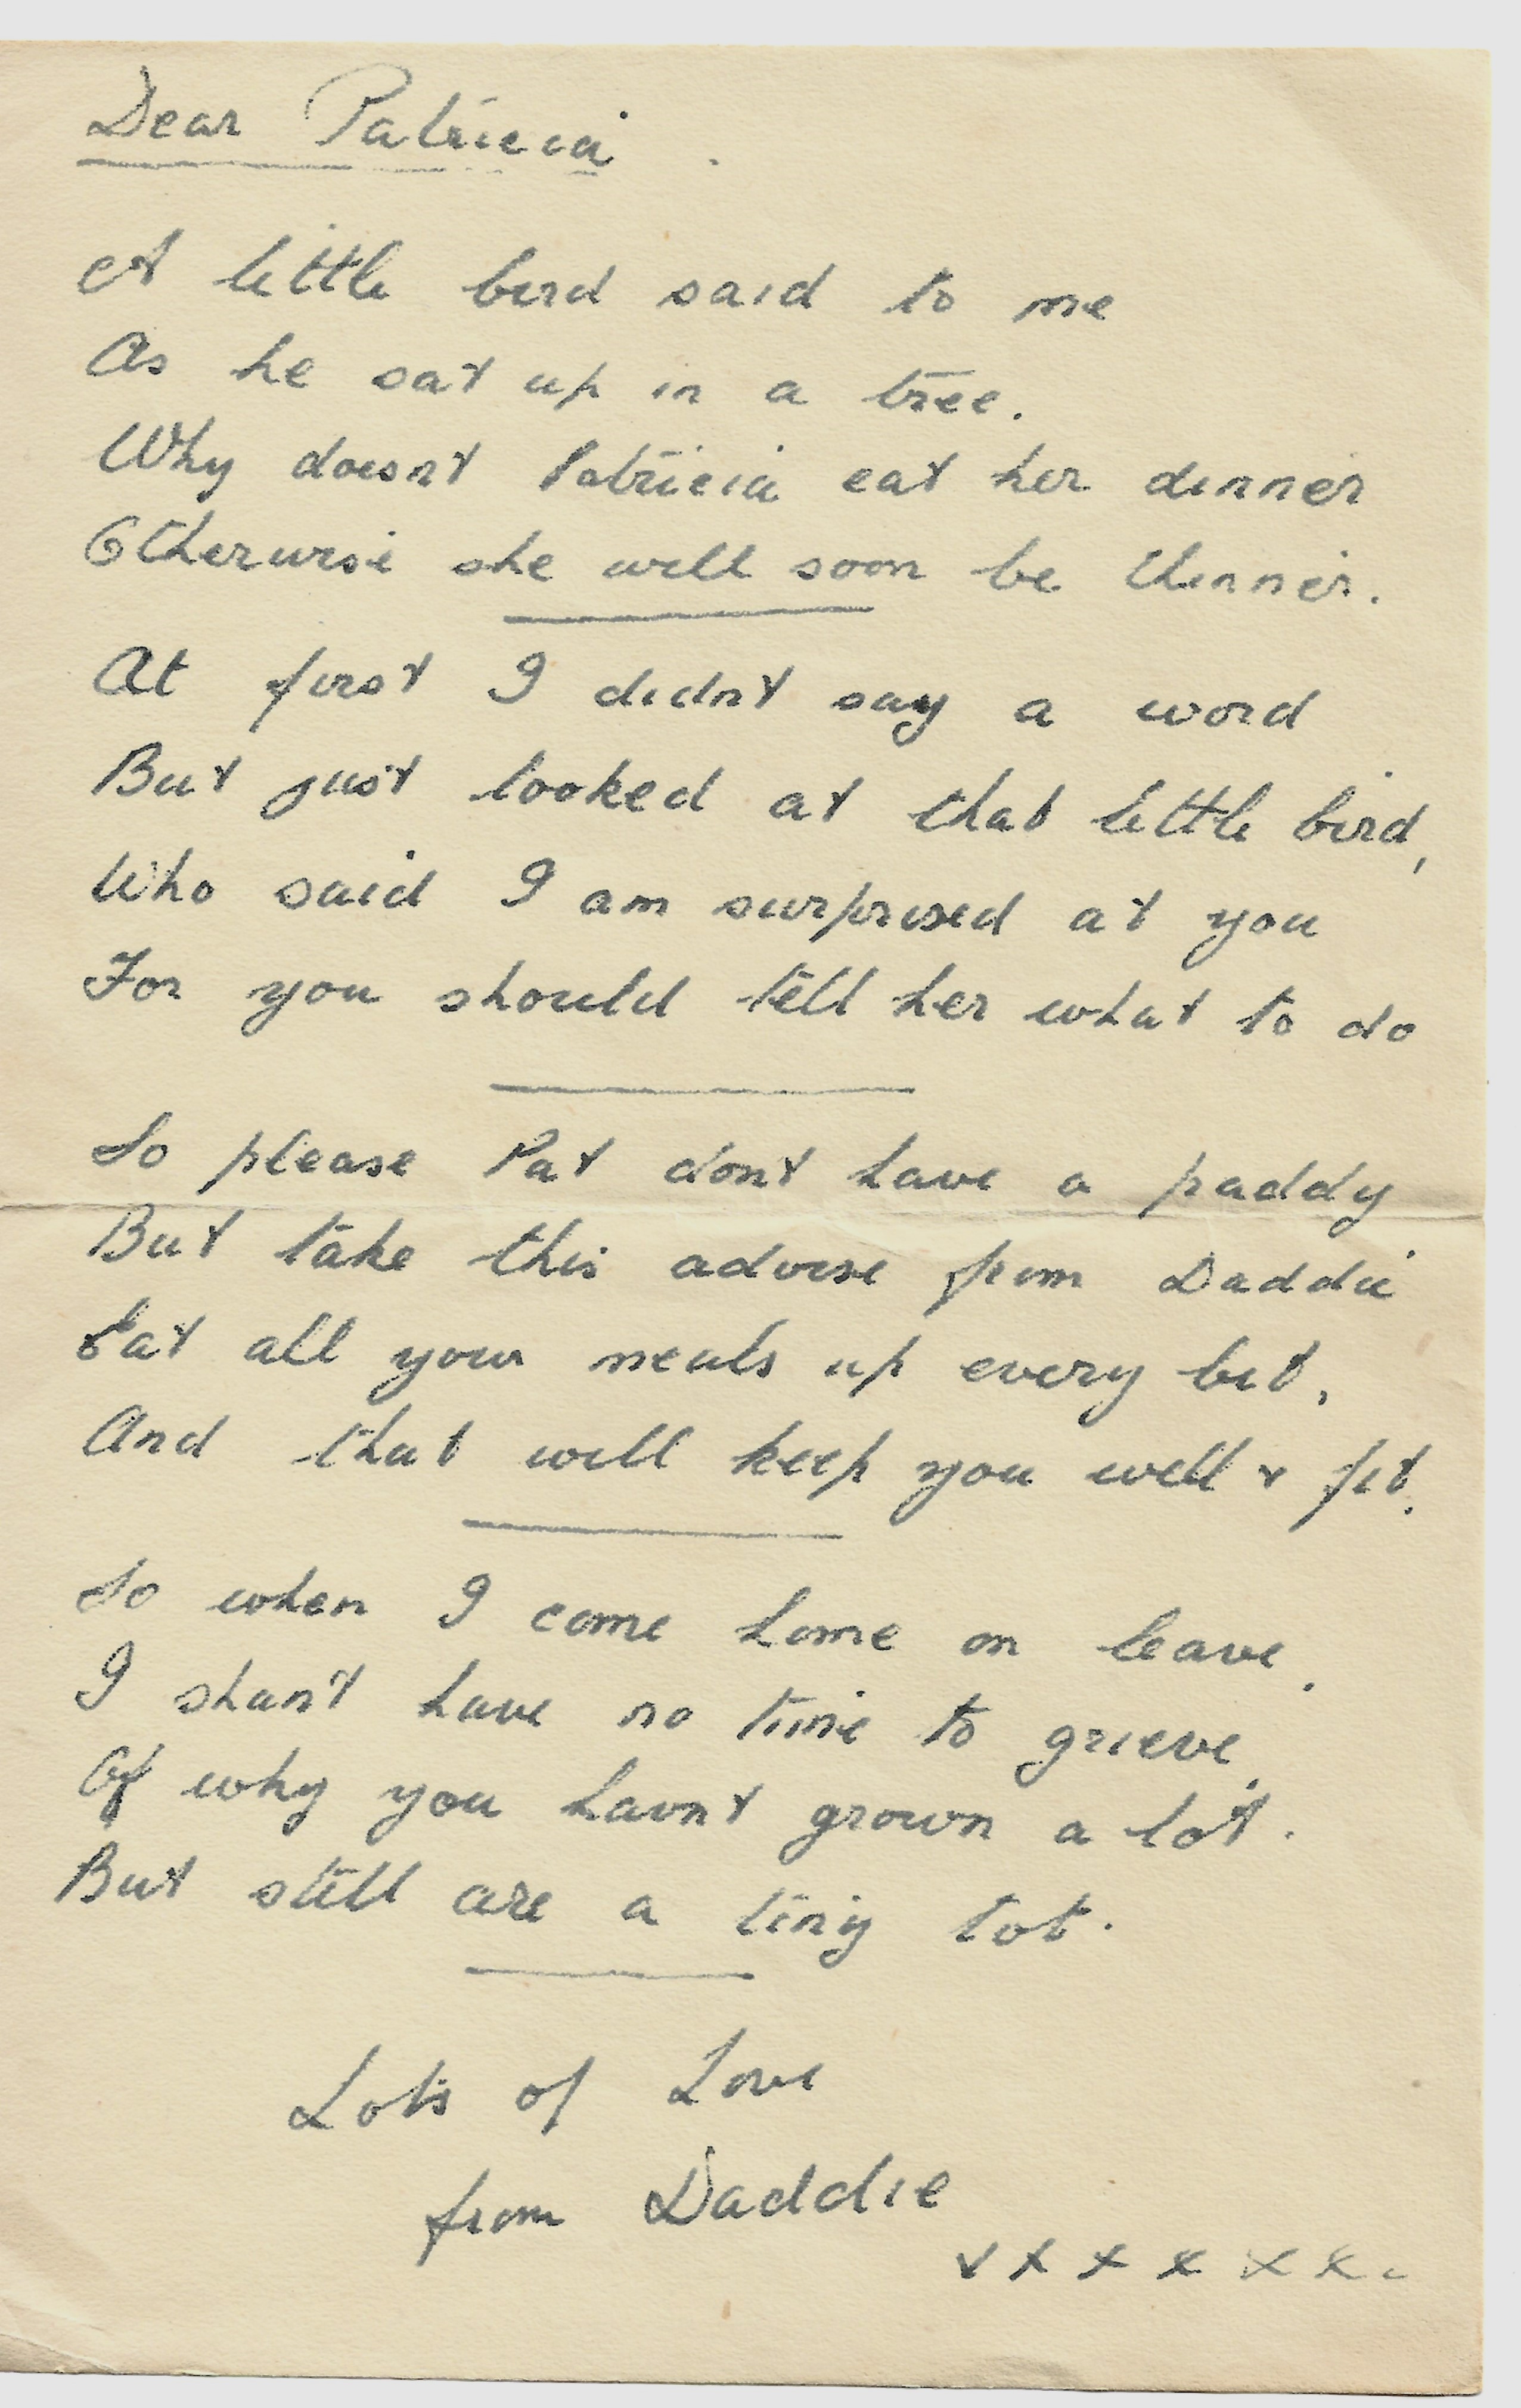 Dear Patricia
A little bird said to me
As he sat up in a tree.
Why doesnt Patricia eat her dinner
Otherwise she will soon be thinner.
At first I didnt say a word
But just looked at that little bird,
Who said I am surprised at you
For you should tell her what to do
So please Pat dont have a paddy
But take this advise from Daddie
Eat all your meals up every bit,
And that will keep you well & fit.
So when I come home on leave,
I shan't have no time to grieve,
Of why you havnt grown a lot.
But still are a tiny tot.
Lots of Love
from Daddie
x x x x x x